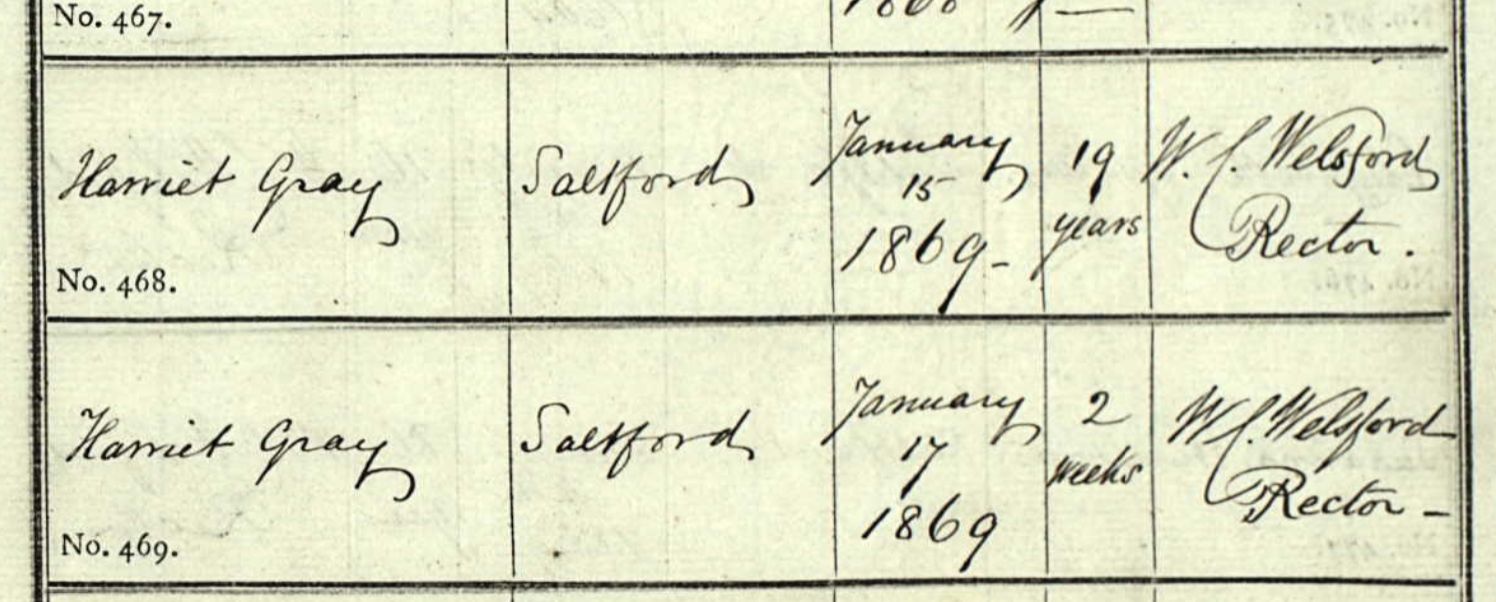 No. 467.
1868
Harriet Gray
Saltford
January
15
1869-
19
years
W. C. Welsford
Rector.
No. 468.
Harriet Gray
Saltford
January
17
1869
2
weeks
W. C. Welsford
Rector-
No. 469.